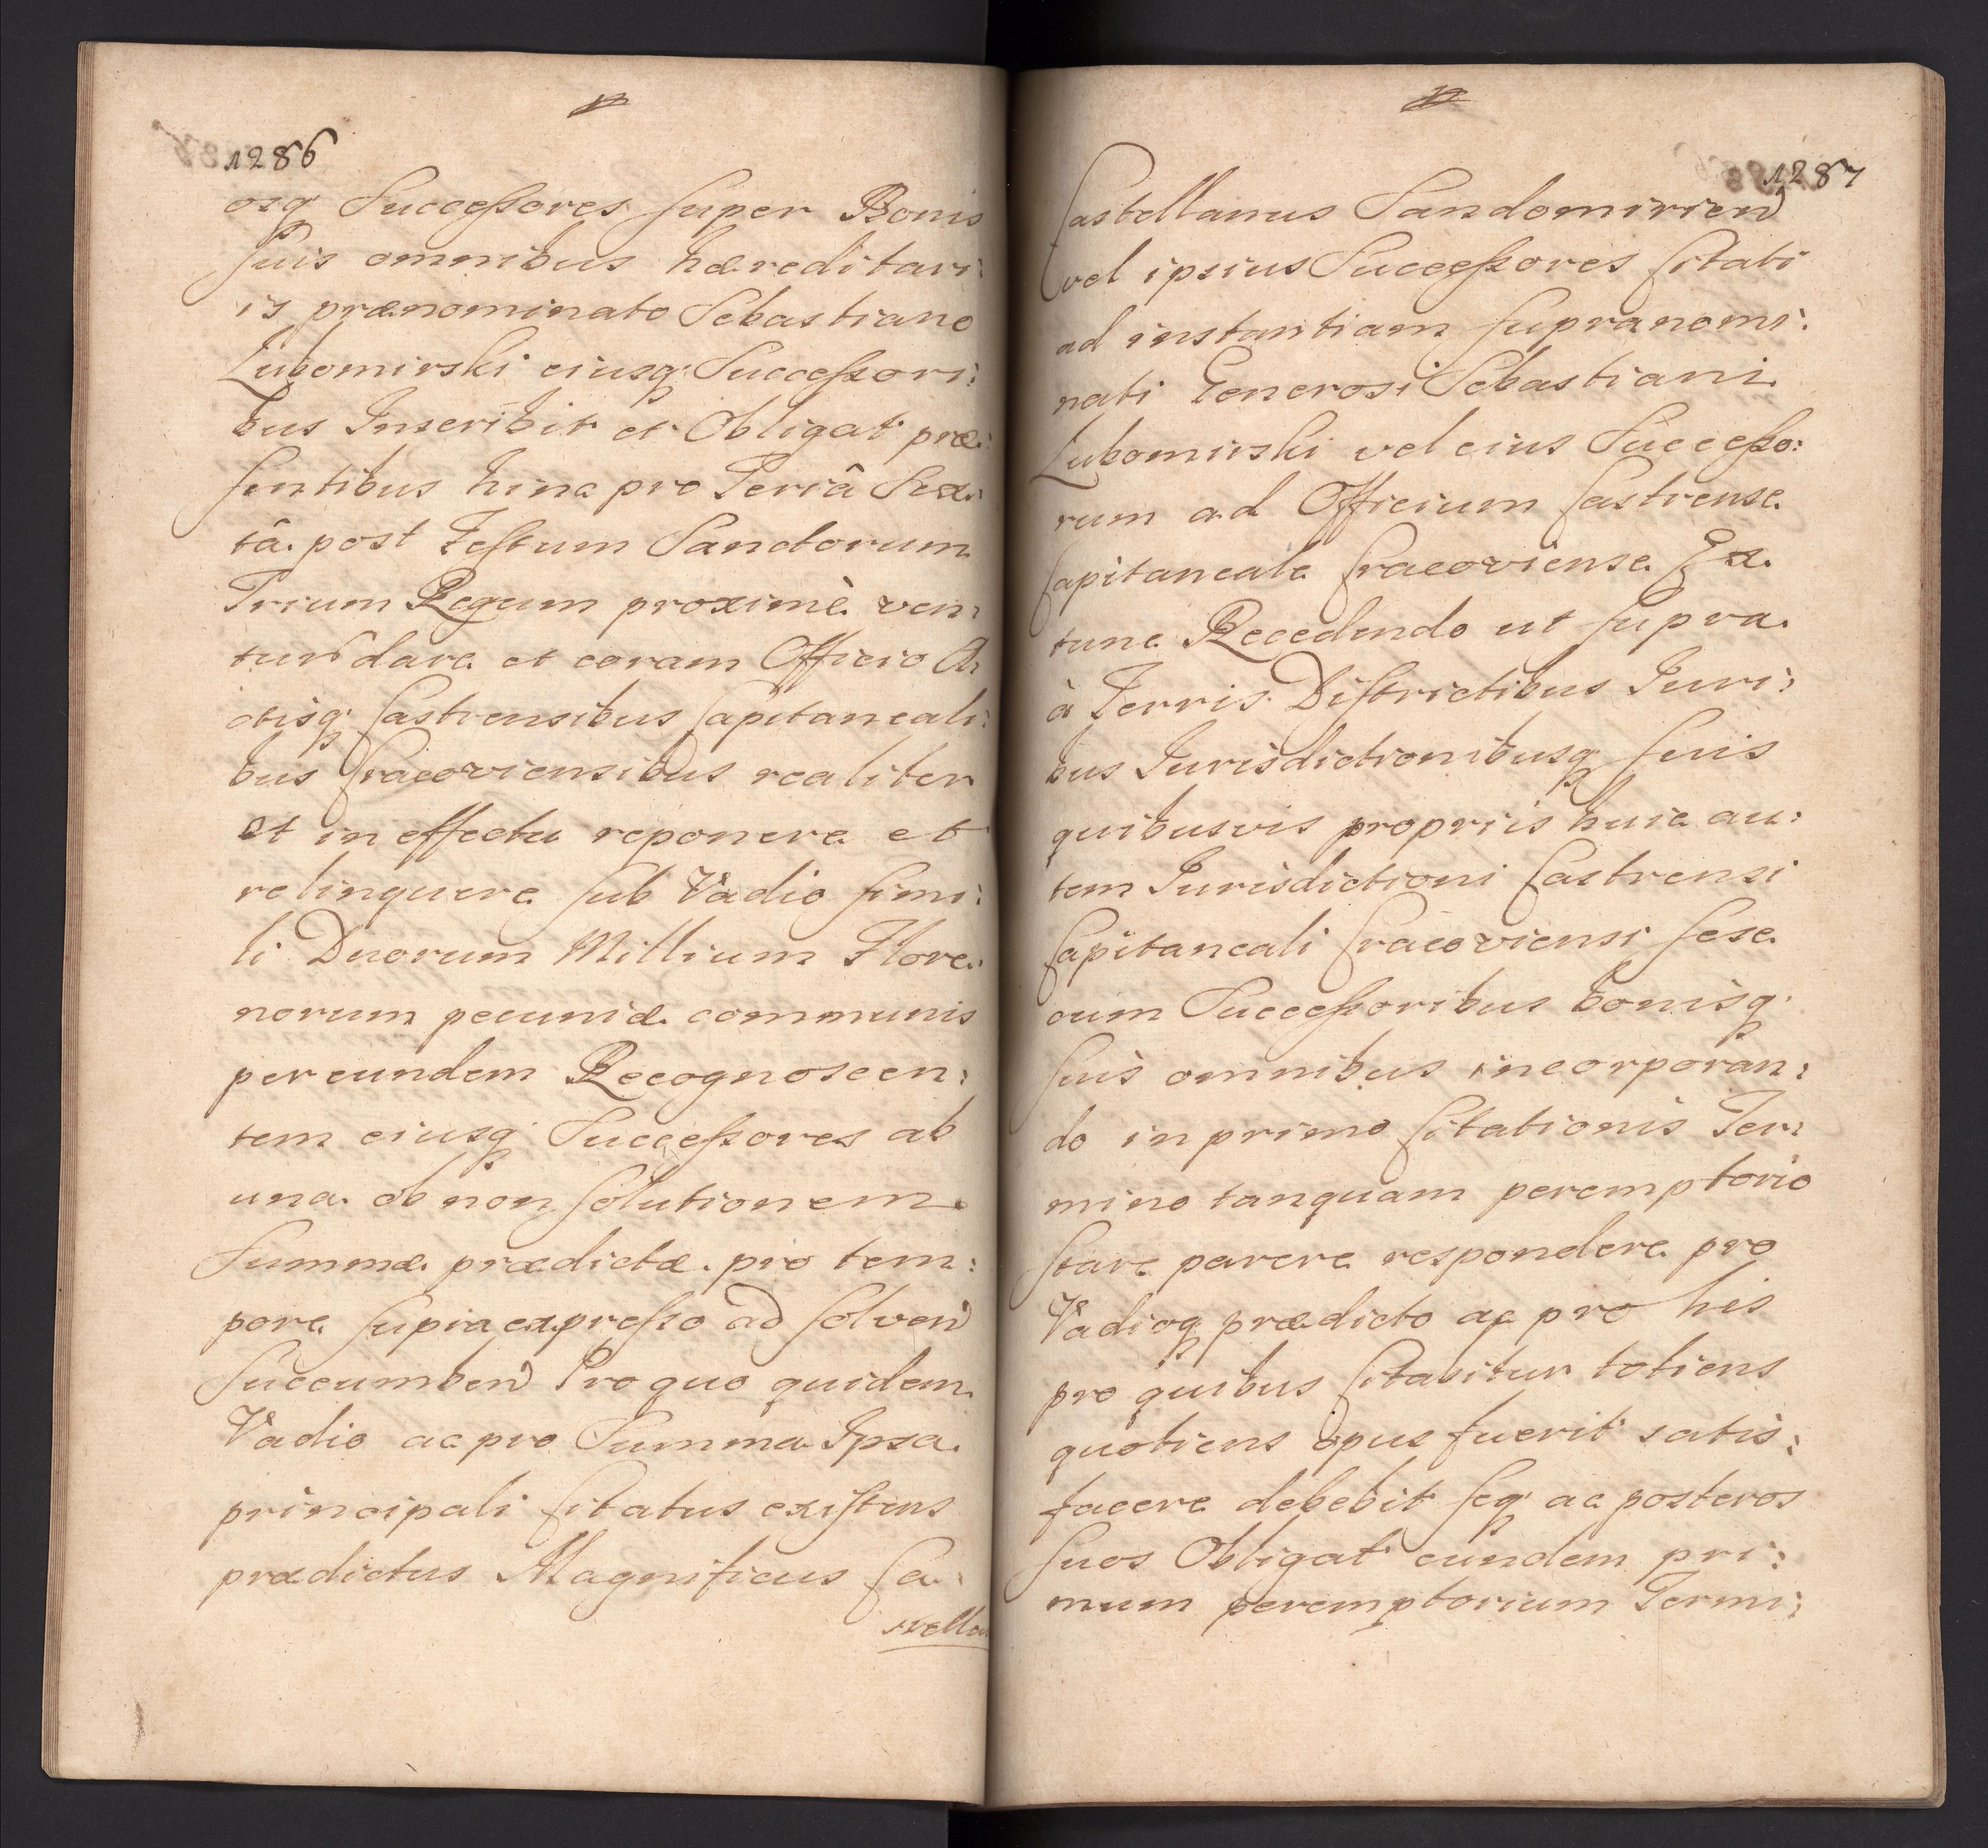 1286
osq Successores super Bonis
suis omnibus hæreditari:
is prænominato Sebastiano
Lubomirski eiusq. Successori:
bus Inscribit et Obligat præ:
sentibus hinc pro Feriâ Sex:
tâ post Festum Sanctorum
Trium Regum proximè ven:
tur dare et coram Officio A:
ctisq Castrensibus Capitaneali:
bus Cracoviensibus realiter
et in effectu reponere et
relinquere sub Vadio simi:
li Duorum Millium Flore:
norum pecuniæ communis
per eundem Recognoscen:
tem eiusq. Successores ab
una ob non solutionem
Summæ prædictæ pro tem:
pore supra expresso ad solven
succumben Pro quo quidem
Vadio ac pro Summa Ipsa
principali Citatus existens
prædictus Magnificus Ca:
stellan
1287
Castellanus Sandomirien
vel ipsius Successores Citati
ad instantiam supranomi:
nati Generosi Sebastiani
Lubomirski vel eius Successo:
rum ad Officium Castrense
Capitaneale Cracoviense Ex
tunc Recedendo ut supra
à Terris Districtibus Juri:
bus Jurisdictionibusq suis
quibusvis propriis huic au:
tem Jurisdictioni Castrensi
Capitaneali Cracoviensi sese
cum Successoribus bonisq.
suis omnibus incorporan:
do in primo Citationis Ter:
mino tanquam peremptorio
stare parere respondere pro
Vadioq prædicto ac pro his
pro quibus Citabitur totiens
quotiens opus fuerit satis:
facere debebit seq ac posteros
suos Obligat eundem pri:
mum peremptorium Termi: